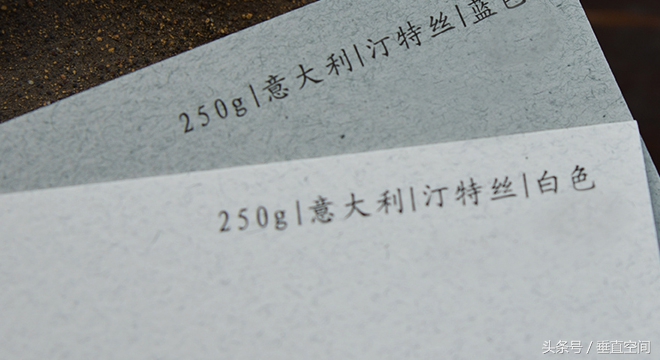 250g|意大利|汀特丝|蓝色
250g|意大利|汀特丝|白色
头条号 / 垂直空间